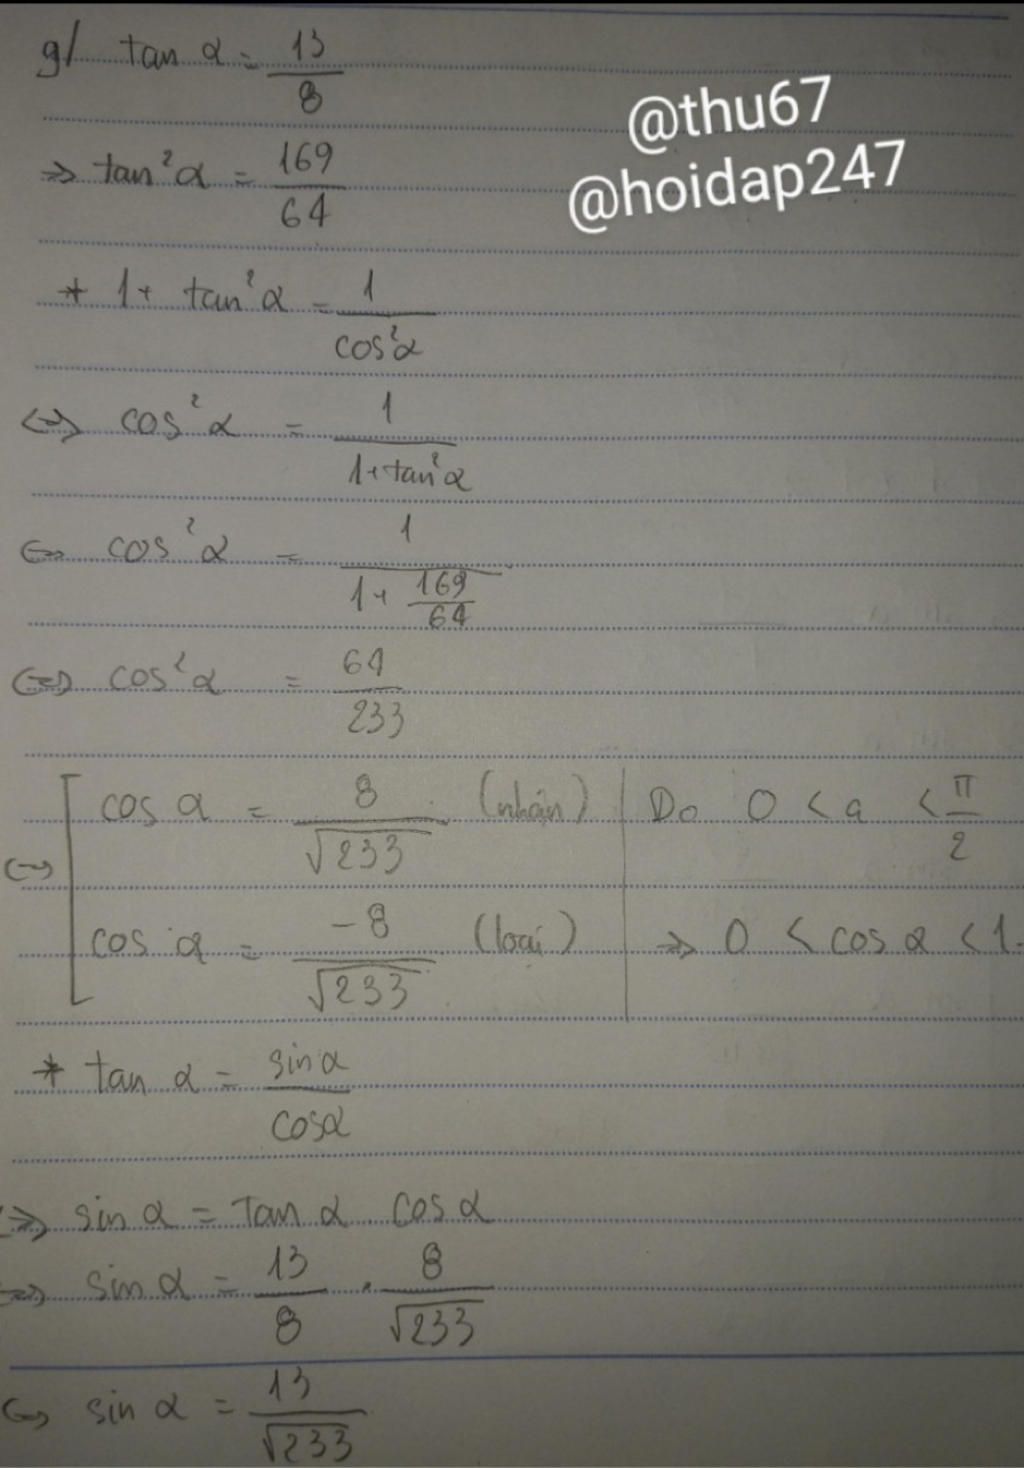 g/ tan α = 13/8
@thu67
@hoidap247
⇒ tan²α = 169/64
* 1+ tan²α = 1/cos²α
⇔ cos²α = 1/(1+tan²α)
⇔ cos²α = 1/(1+ 169/64)
⇔ cos²α = 64/233
⇔ [ cos α = 8/√233 (nhận) | Do 0 < a < π/2
cos α = -8/√233 (loại) | ⇒ 0 < cos α < 1.
* tan α = sin α/cos α
⇒ sin α = tan α . cos α
⇔ sin α = 13/8 . 8/√233
⇔ sin α = 13/√233